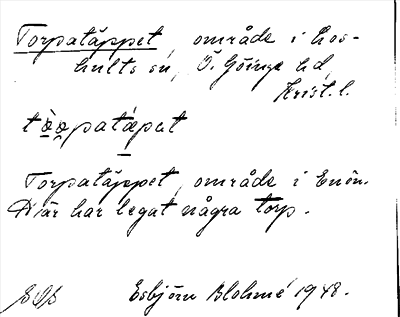 Torpatäppet, område i Los-
hults sn, Ö. Göinge hd,
Krist. l.
Torpatäppet, område i Enön.
Där har legat några torp.
Esbjörn Blohmé 1948.